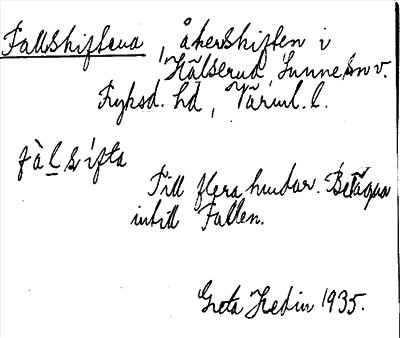 Fallskiftena, åkerskiften i
Hälserud, Sunne sn v.
Fryksd. hd, Värml. l.
fàl̲sífta
Till flera hundar. Belägna
intill Fallen.
Greta Hedin 1935.